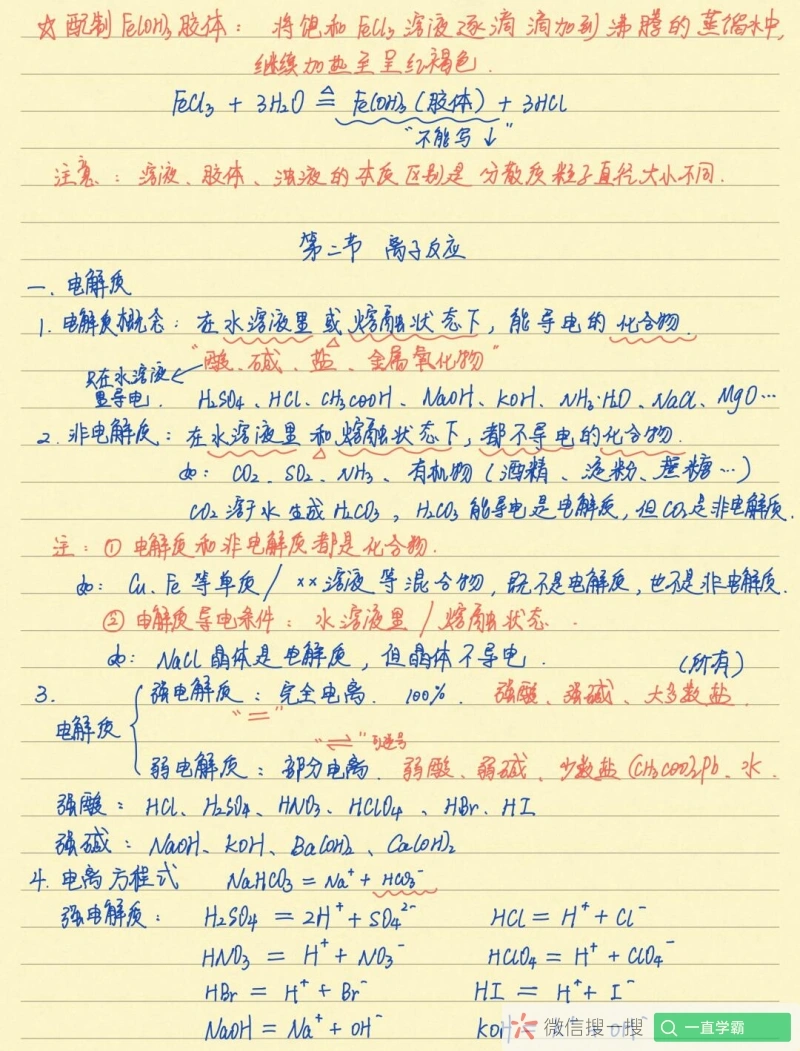 ☆配制Fe(OH)3胶体：将饱和FeCl3溶液逐滴滴加到沸腾的蒸馏水中,
继续加热至呈红褐色.
FeCl3 + 3H2O ≜ Fe(OH)3(胶体) + 3HCl
"不能写↓"
注意：溶液、胶体、浊液的本质区别是分散质粒子直径大小不同.
第二节 离子反应
一. 电解质
1. 电解质概念：在水溶液里或熔融状态下，能导电的化合物.
"酸、碱、盐、金属氧化物"
只在水溶液
里导电.
H2SO4、HCl、CH3COOH、NaOH、KOH、NH3·H2O、NaCl、MgO…
2. 非电解质：在水溶液里和熔融状态下，都不导电的化合物.
如：CO2、SO2、NH3、有机物（酒精、淀粉、蔗糖…）
CO2溶于水生成H2CO3，H2CO3能导电是电解质，但CO2是非电解质.
注：① 电解质和非电解质都是化合物.
如：Cu、Fe等单质/××溶液等混合物，既不是电解质，也不是非电解质.
② 电解质导电条件：水溶液里/熔融状态.
如：NaCl晶体是电解质，但晶体不导电.
(所有)
3.
电解质
强电解质：完全电离. 100%. 强酸、强碱、大多数盐.
"="
"⇌"可逆号
弱电解质：部分电离. 弱酸、弱碱、少数盐(CH3COO)2Pb、水.
强酸：HCl、H2SO4、HNO3、HClO4、HBr、HI
强碱：NaOH、KOH、Ba(OH)2、Ca(OH)2
4. 电离方程式 NaHCO3 = Na+ + HCO3-
强电解质： H2SO4 = 2H+ + SO42- HCl = H+ + Cl-
HNO3 = H+ + NO3- HClO4 = H+ + ClO4-
HBr = H+ + Br- HI = H+ + I-
NaOH = Na+ + OH- KOH
微信搜一搜 一直学霸